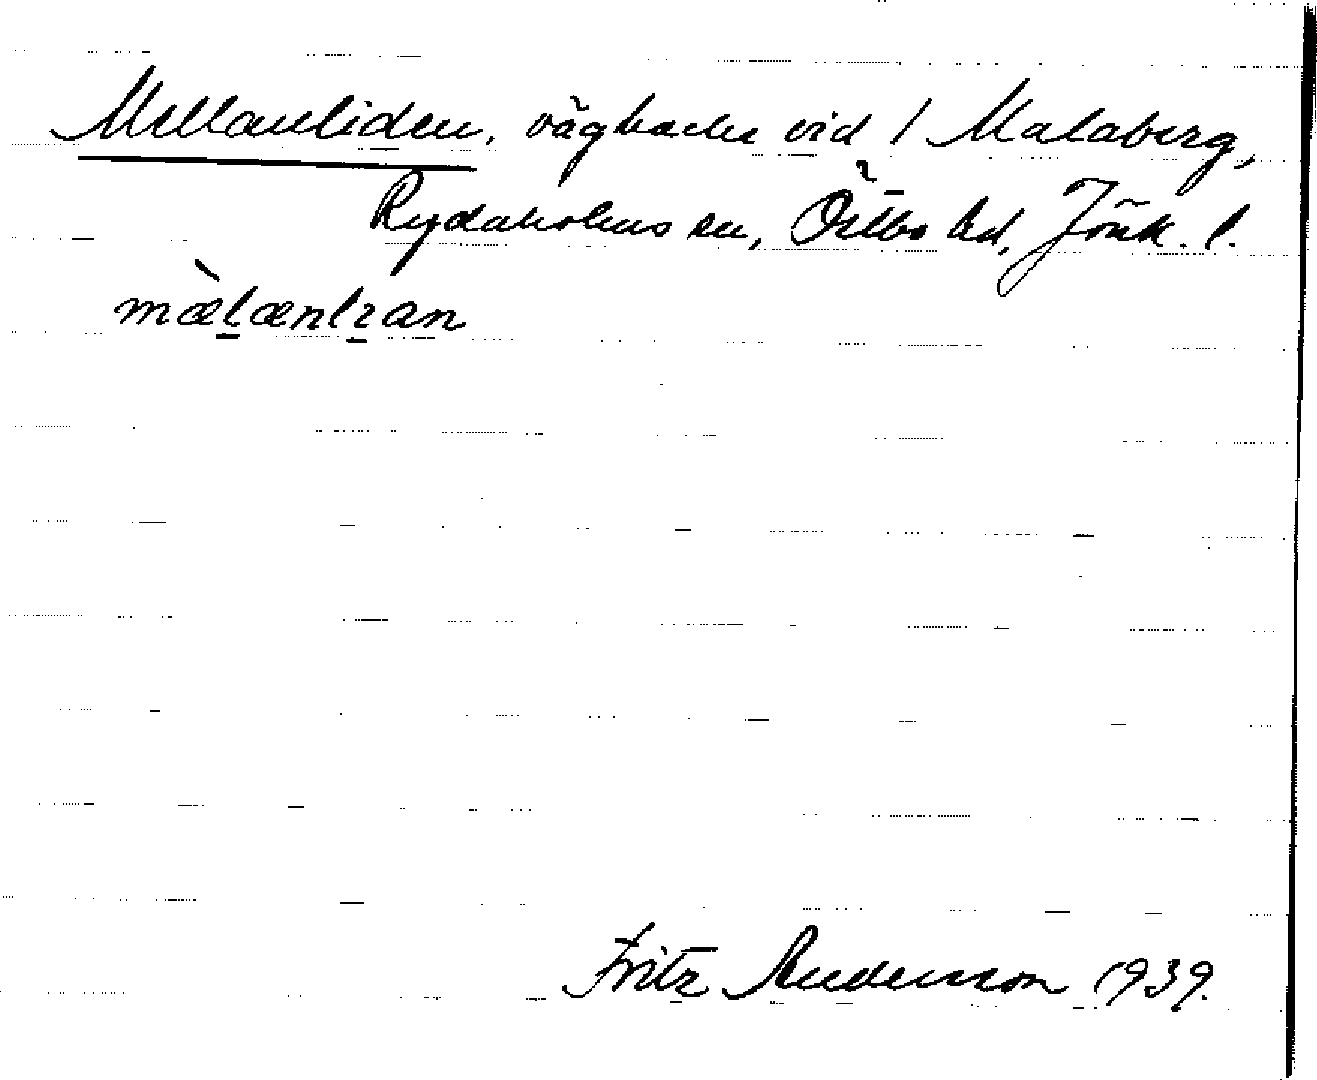 Mellanliden, vägbacke vid / Malaberg,
Rydaholms sn, Östbo hd, Jönk. l.
mæ̀lænlɩan
Fritz Andersson 1939.